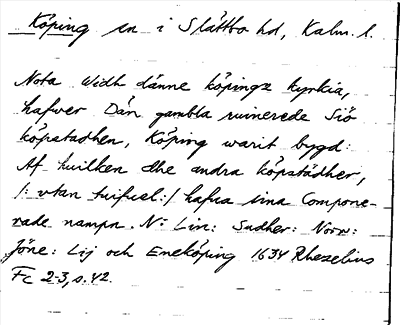 Köping sn i Slättbo hd, Kalm. l.
Nota widh dänne köpingz kyrkia,
hafwer Dän gambla ruinerede Siö
köpstadhen, Köping warit bygd:
Af huilken the andra köpstädher,
/: vtan tuifuel:/ hafua sina Compone-
rade nampn. N: Lin: Sudher: Norr:
Jöne: Lij och Eneköping 1634 Rhezelius
Fc 2-3, s. 42.